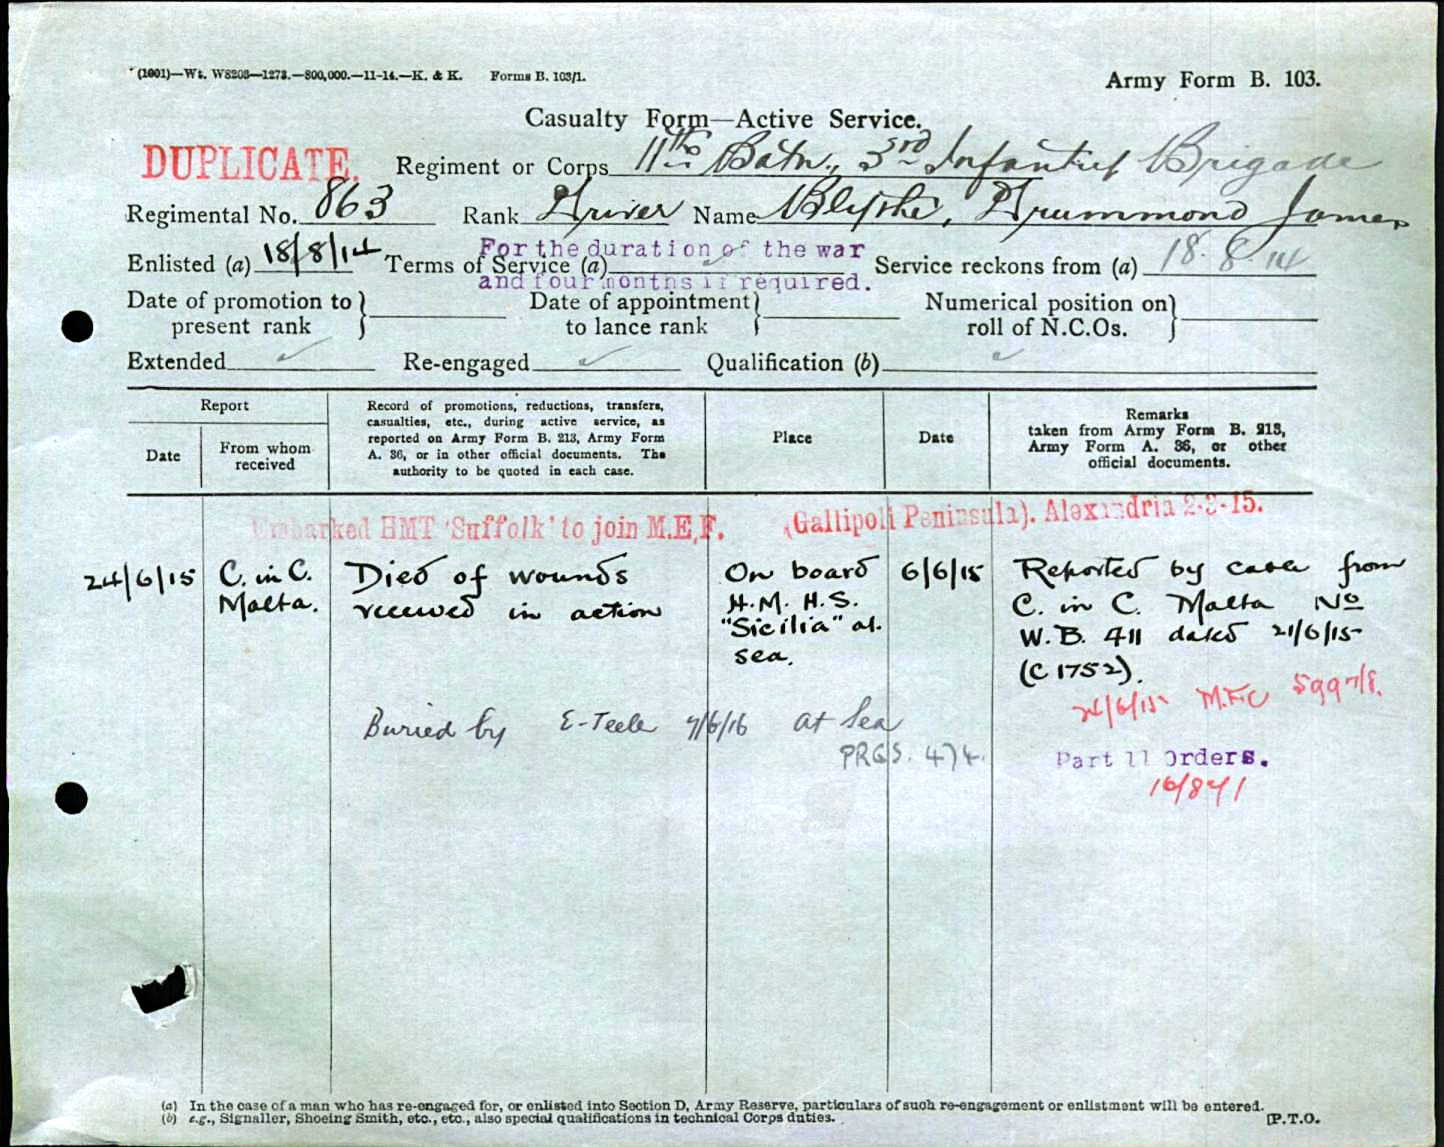 (1001)—Wt. W8203—1273.—800,000.—11-14.—K. & K. Forms B. 103/1.
Army Form B. 103.
Casualty Form—Active Service.
DUPLICATE. Regiment or Corps 11th Batn., 3rd Infantry Brigade
Regimental No. 863 Rank Driver Name Blythe, Drummond James
Enlisted (a) 18/8/14 Terms of Service (a) For the duration of the war and four months if required. Service reckons from (a) 18.8.14
Date of promotion to present rank
Date of appointment to lance rank
Numerical position on roll of N.C.Os.
Extended ✓ Re-engaged ✓ Qualification (b) ✓
Report
Date
From whom received
Record of promotions, reductions, transfers,
casualties, etc., during active service, as
reported on Army Form B. 213, Army Form
A. 36, or in other official documents. The
authority to be quoted in each case.
Place
Date
Remarks
taken from Army Form B. 213,
Army Form A. 36, or other
official documents.
Embarked HMT 'Suffolk' to join M.E.F. (Gallipoli Peninsula). Alexandria 2-3-15.
24/6/15
C. in C.
Malta.
Died of wounds
received in action
On board
H.M. H.S.
"Sicilia" at
sea.
6/6/15
Reported by cable from
C. in C. Malta No
W.B. 411 dated 21/6/15
(C 1752).
24/6/15
Buried by E-Teele 7/6/16 at Sea
PRGS. 474.
Part 11 Orders.
(a) In the case of a man who has re-engaged for, or enlisted into Section D, Army Reserve, particulars of such re-engagement or enlistment will be entered.
(b) e.g., Signaller, Shoeing Smith, etc., etc., also special qualifications in technical Corps duties.
[P.T.O.